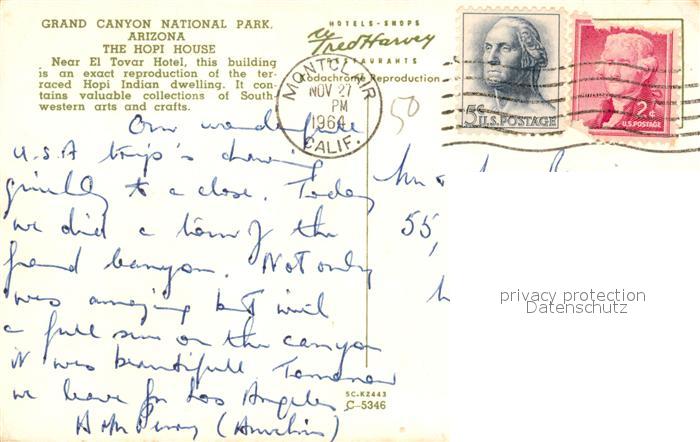 GRAND CANYON NATIONAL PARK,
ARIZONA
THE HOPI HOUSE
Near El Tovar Hotel, this building
is an exact reproduction of the ter-
raced Hopi Indian dwelling. It con-
tains valuable collections of South-
western arts and crafts.
HOTELS-SHOPS
Fred Harvey
RESTAURANTS
Kodachrome Reproduction
MONTCLAIR
NOV 27
PM
1964
CALIF.
50
5¢ U.S. POSTAGE
2¢
U.S. POSTAGE
Our wonderful
U.S.A trip's drawing
quickly to a close. Today
we did a tour of the
grand canyon. Not only
was amazing but with
a full sun on the canyon
it was beautifull. Tomorrow
we leave for Los Angeles
55,
privacy protection
Datenschutz
SC-K2443
C-5346